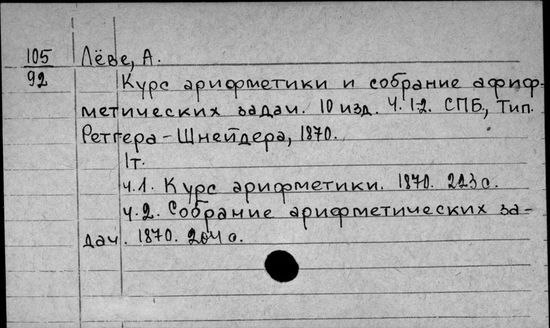 105 Лёве, А.
92 Курс арифметики и собрание ариф-
метических задач. 10 изд. Ч. 1-2. СПБ, Тип.
Ретгера-Шнейдера, 1870.
1т.
ч.1. Курс арифметики. 1870. 223 с.
ч.2. Собрание арифметических за-
дач. 1870. 204 с.